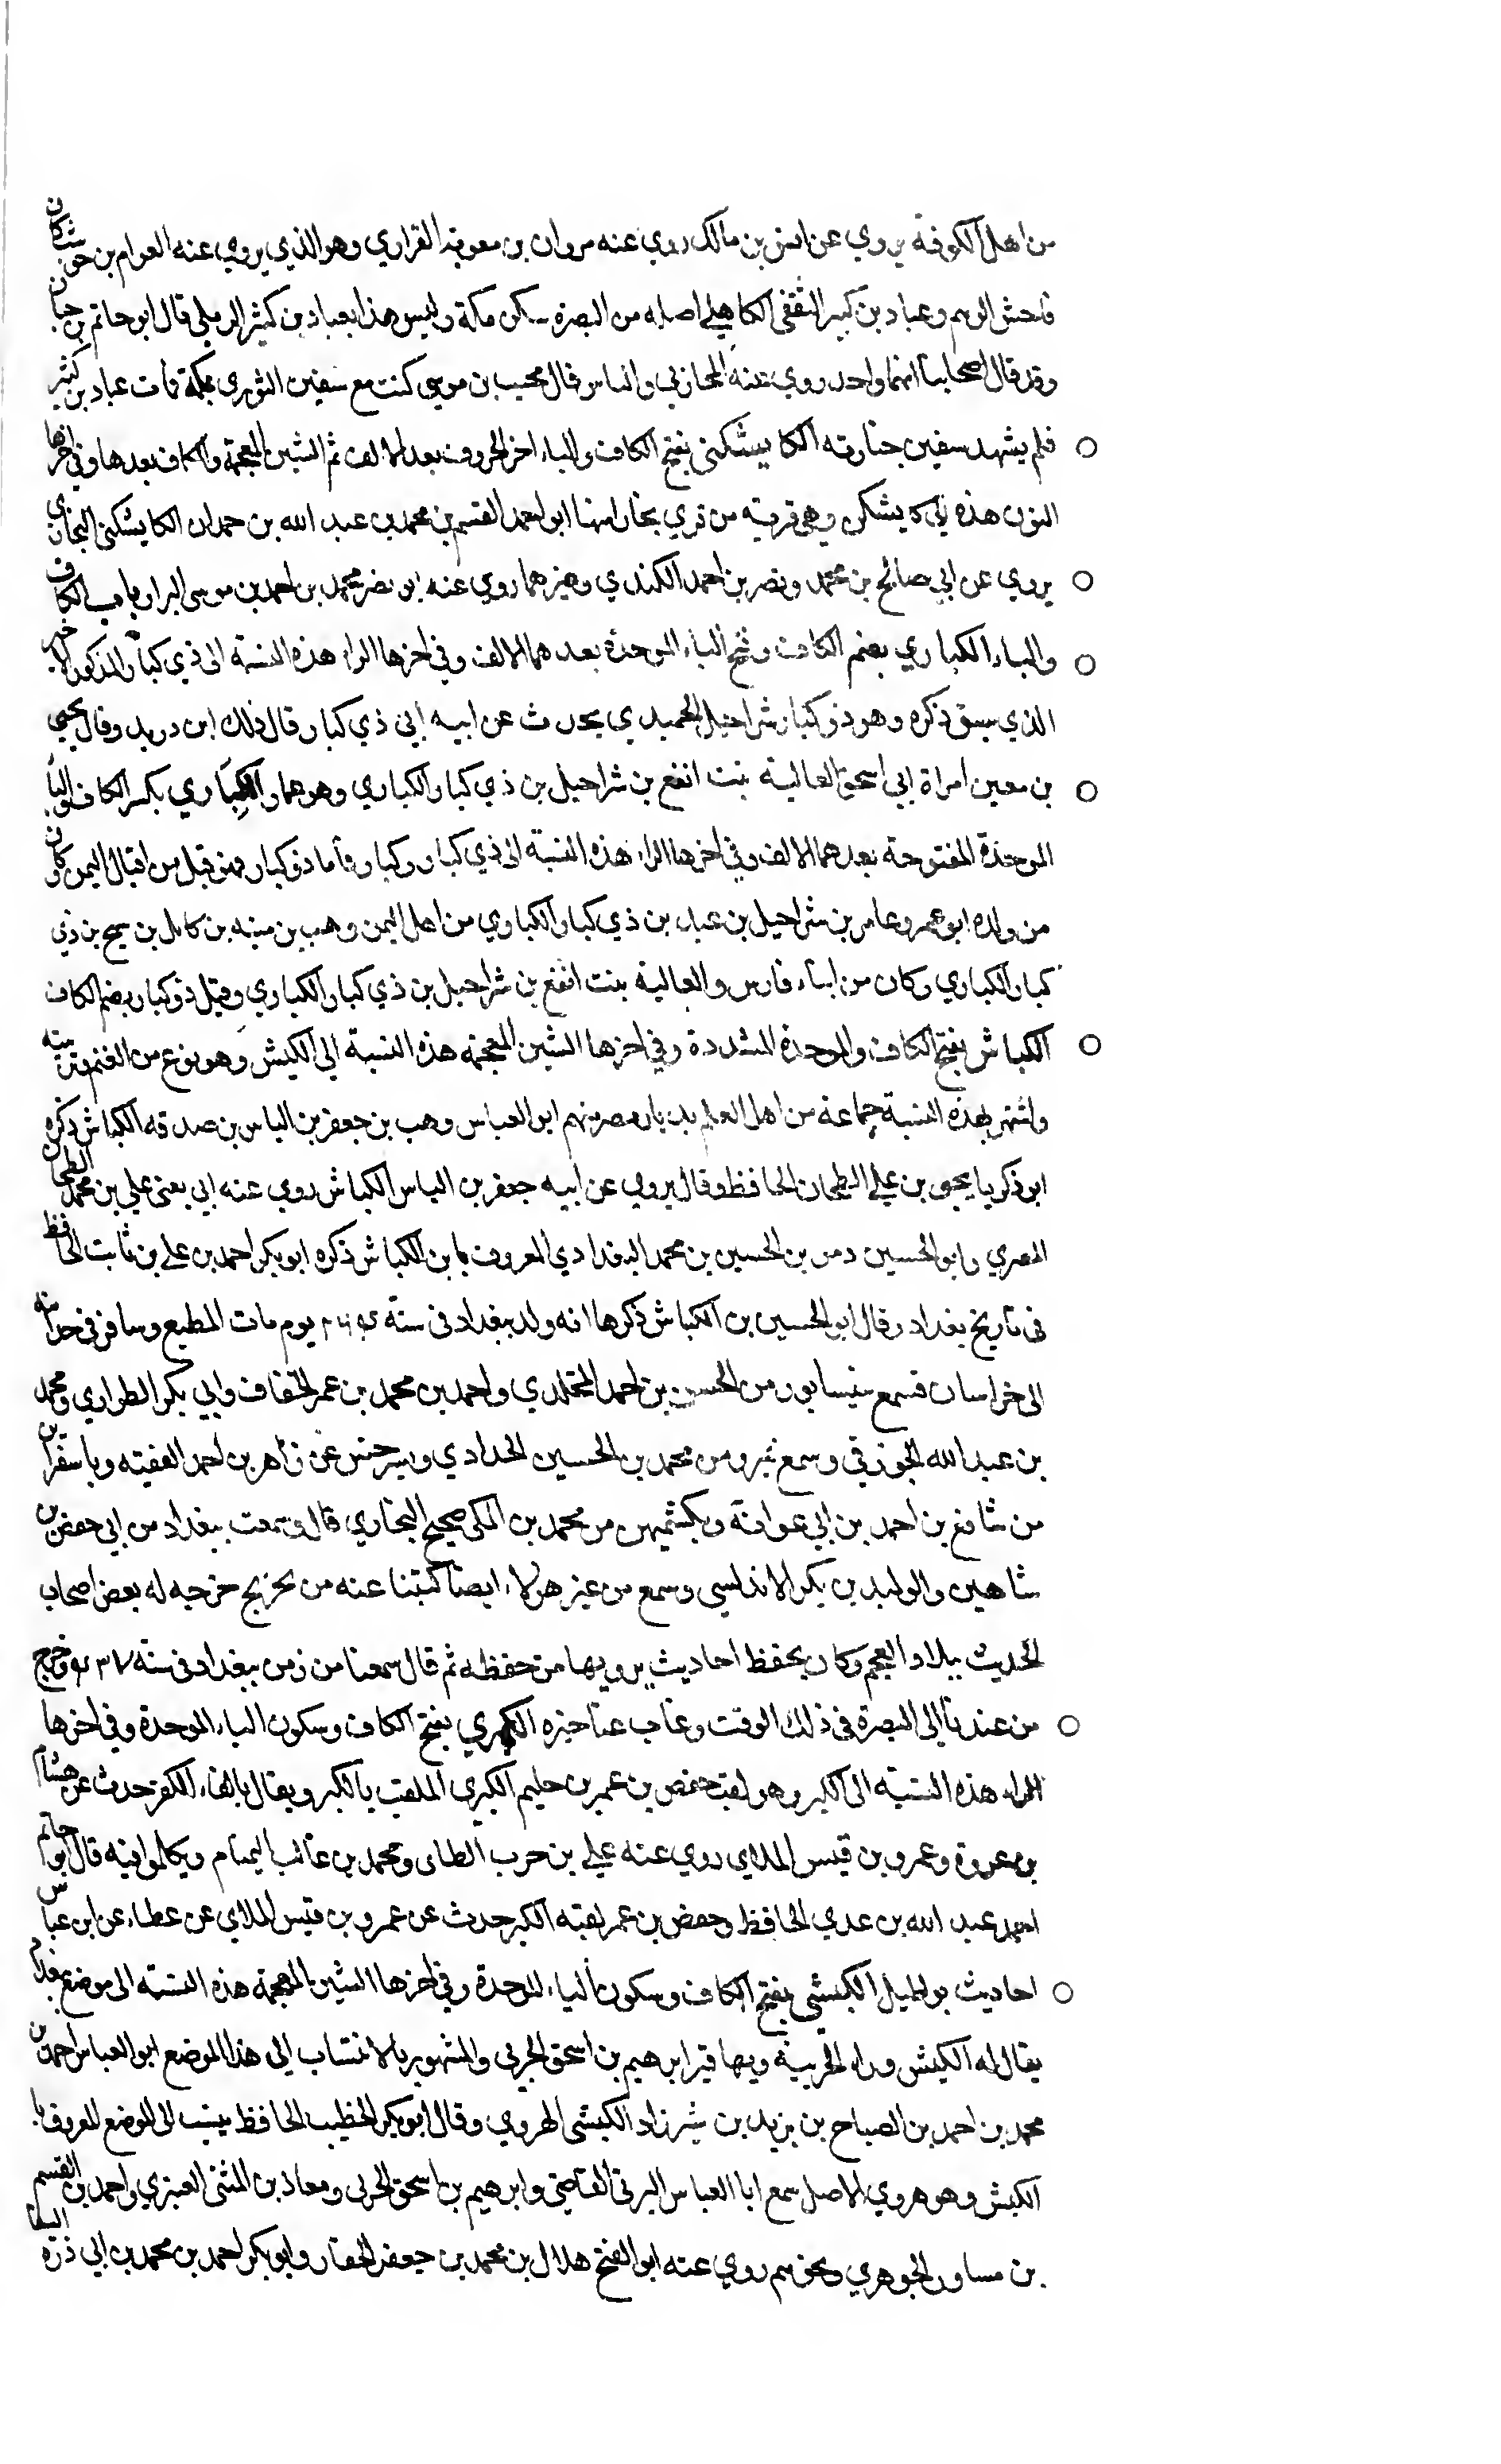 من اهل الكوفة يروي عن انس بن مالك روي عنه مروان بن معوية القراري وهو الذي يروي عنه العوام بن حوشب كان
فاحش الوهم وعباد بن كثير الثقفي الكاهلي اصله من البصرة سكن مكة وليس هذا بعباد بن كثير الرملي قال ابو حاتم بن حبان
وقد قال اصحابنا انهما واحد روي عنه المحاربي والناس قال محبب بن موسي كنت مع سفين الثوري بمكة فمات عباد بن كثير
فلم يشهد سفين جنازته الكايشكني بفتح الكاف والياء اخر الحروف بعد الالف ثم الشين المعجمة والكاف بعدها وفي اخرها
النون هذه الي كايشكن وهي قرية من قري بخارا منها ابو احمد القسم بن محمد بن عبد الله بن حمدان الكايشكني البخاري
يروي عن ابي صالح بن محمد ونصر بن احمد الكندي وغيرهما روي عنه ابو نصر محمد بن احمد بن موسى البزار باب الكاف
والباء الكباري بضم الكاف وفتح الباء الموحدة بعدهما الالف وفي اخرها الراء هذه النسبة الى ذي كبار المذكور الاخير
الذي سبق ذكره وهو ذو كبار شراحيل الحميدي يحدث عن ابيه ابي ذي كبار قال ذلك ابن دريد وقال يحيى
بن معين امراة ابي اسحق العالية بنت انفع بن شراحيل بن ذي كبار الكباري وهو هما والكباري بكسر الكاف والباء
الموحدة المفتوحة بعدهما الالف وفي اخرها الراء هذه النسبة الى ذي كبار وكبار فأما ذو كبار فهو قيل من اقيال اليمن كان و
من ولده ابو عمرو عامر بن شراحيل بن عبد بن ذي كبار الكباري من اهل اليمن وهب بن منبه بن كامل بن سيح بن ذي
كبار الكباري وكان من ابناء فارس والعالية بنت انفع بن شراحيل بن ذي كبار الكباري وقيل ذو كبار بضم الكاف
الكباش بفتح الكاف والموحدة المشددة وفي اخرها الشين المعجمة هذه النسبة الي الكبش وهو نوع من الغنم وتربيته
واشتهر بهذه النسبة جماعة من اهل العلم بديار مصر منهم ابو العباس وهب بن جعفر بن الياس بن صدقه الكباش ذكره
ابو زكريا يحيى بن علي الطحان الحافظ وقال يروي عن ابيه جعفر بن الياس الكباش روي عنه ابي يعني علي بن محمد الطحان
المصري وابو الحسين بن الحسين بن محمد البغدادي المعروف بابن الكباش ذكره ابو بكر احمد بن علي بن ثابت الحافظ
في تاريخ بغداد وقال ابو الحسين بن الكباش ذكرها انه ولد ببغداد في سنة يوم مات المطيع وسافر في حداثته
الى خراسان فسمع بنيسابور من الحسن بن احمد المخلدي واحمد بن محمد بن عمر الخفاف وابي بكر الطرازي ومحمد
بن عبد الله الجوزقي وسمع بمرو من محمد بن الحسين الحدادي وبسرخس عن زاهر بن احمد الفقيه وباسفراين
من شافع بن احمد بن ابي عوانة وبكشميهن من محمد بن المكي صحيح البخاري قال وسمعت ببغداد من ابي حفص بن
شاهين والوليد بن بكر الاندلسي وسمع من غير هولاء ايضا كتبنا عنه من تخريج خرجه له بعض اصحاب
الحديث ببلاد العجم وكان يحفظ احاديث يرويها من حفظه ثم قال سمعنا من ببغداد في سنة وخرج
من عندنا الي البصرة في ذلك الوقت وغاب عنا خبره الكبري بفتح الكاف وسكون الباء الموحدة وفي اخرها
الراء هذه النسبة الى الكبر وهو لقب حفص بن عمر بن حليم الكبري الملقب بالكبر ويقال بالفاء الكفر حدث عن هشام
بن عروة وعمرو بن قيس الملاي روي عنه علي بن حرب الطاى ومحمد بن غالب التمتام ويكلموا فيه قال ابو حاتم
احمد عبد الله بن عدي الحافظ وحفص بن عمر لقبه الكبر حدث عن عمرو بن قيس الملاي عن عطاء عن ابن عباس
احاديث بواطيل الكبشي بفتح الكاف وسكون الباء الموحدة وفي اخرها الشين المعجمة هذه النسبة الى موضع ببغداد
يقال له الكبش وراء الحربية وبها قبر ابرهيم بن اسحق الحربي والمشهور بالانتساب الي هذا الموضع ابو العباس احمد بن
محمد بن احمد بن الصباح بن يزيد بن شيرزاد الكبشي الهروي وقال ابو بكر الخطيب الحافظ ينسب الى الموضع المعروف با
الكبش وهو هروي الاصل سمع ابا العباس البرتي القاضي وابرهيم بن اسحق الحربي ومعاذ بن المثنى العنبري واحمد بن القسم
بن مساور الجوهري ونحوهم روي عنه ابو الفتح هلال بن محمد بن جعفر الحفار وابو بكر احمد بن محمد بن ابي ذره